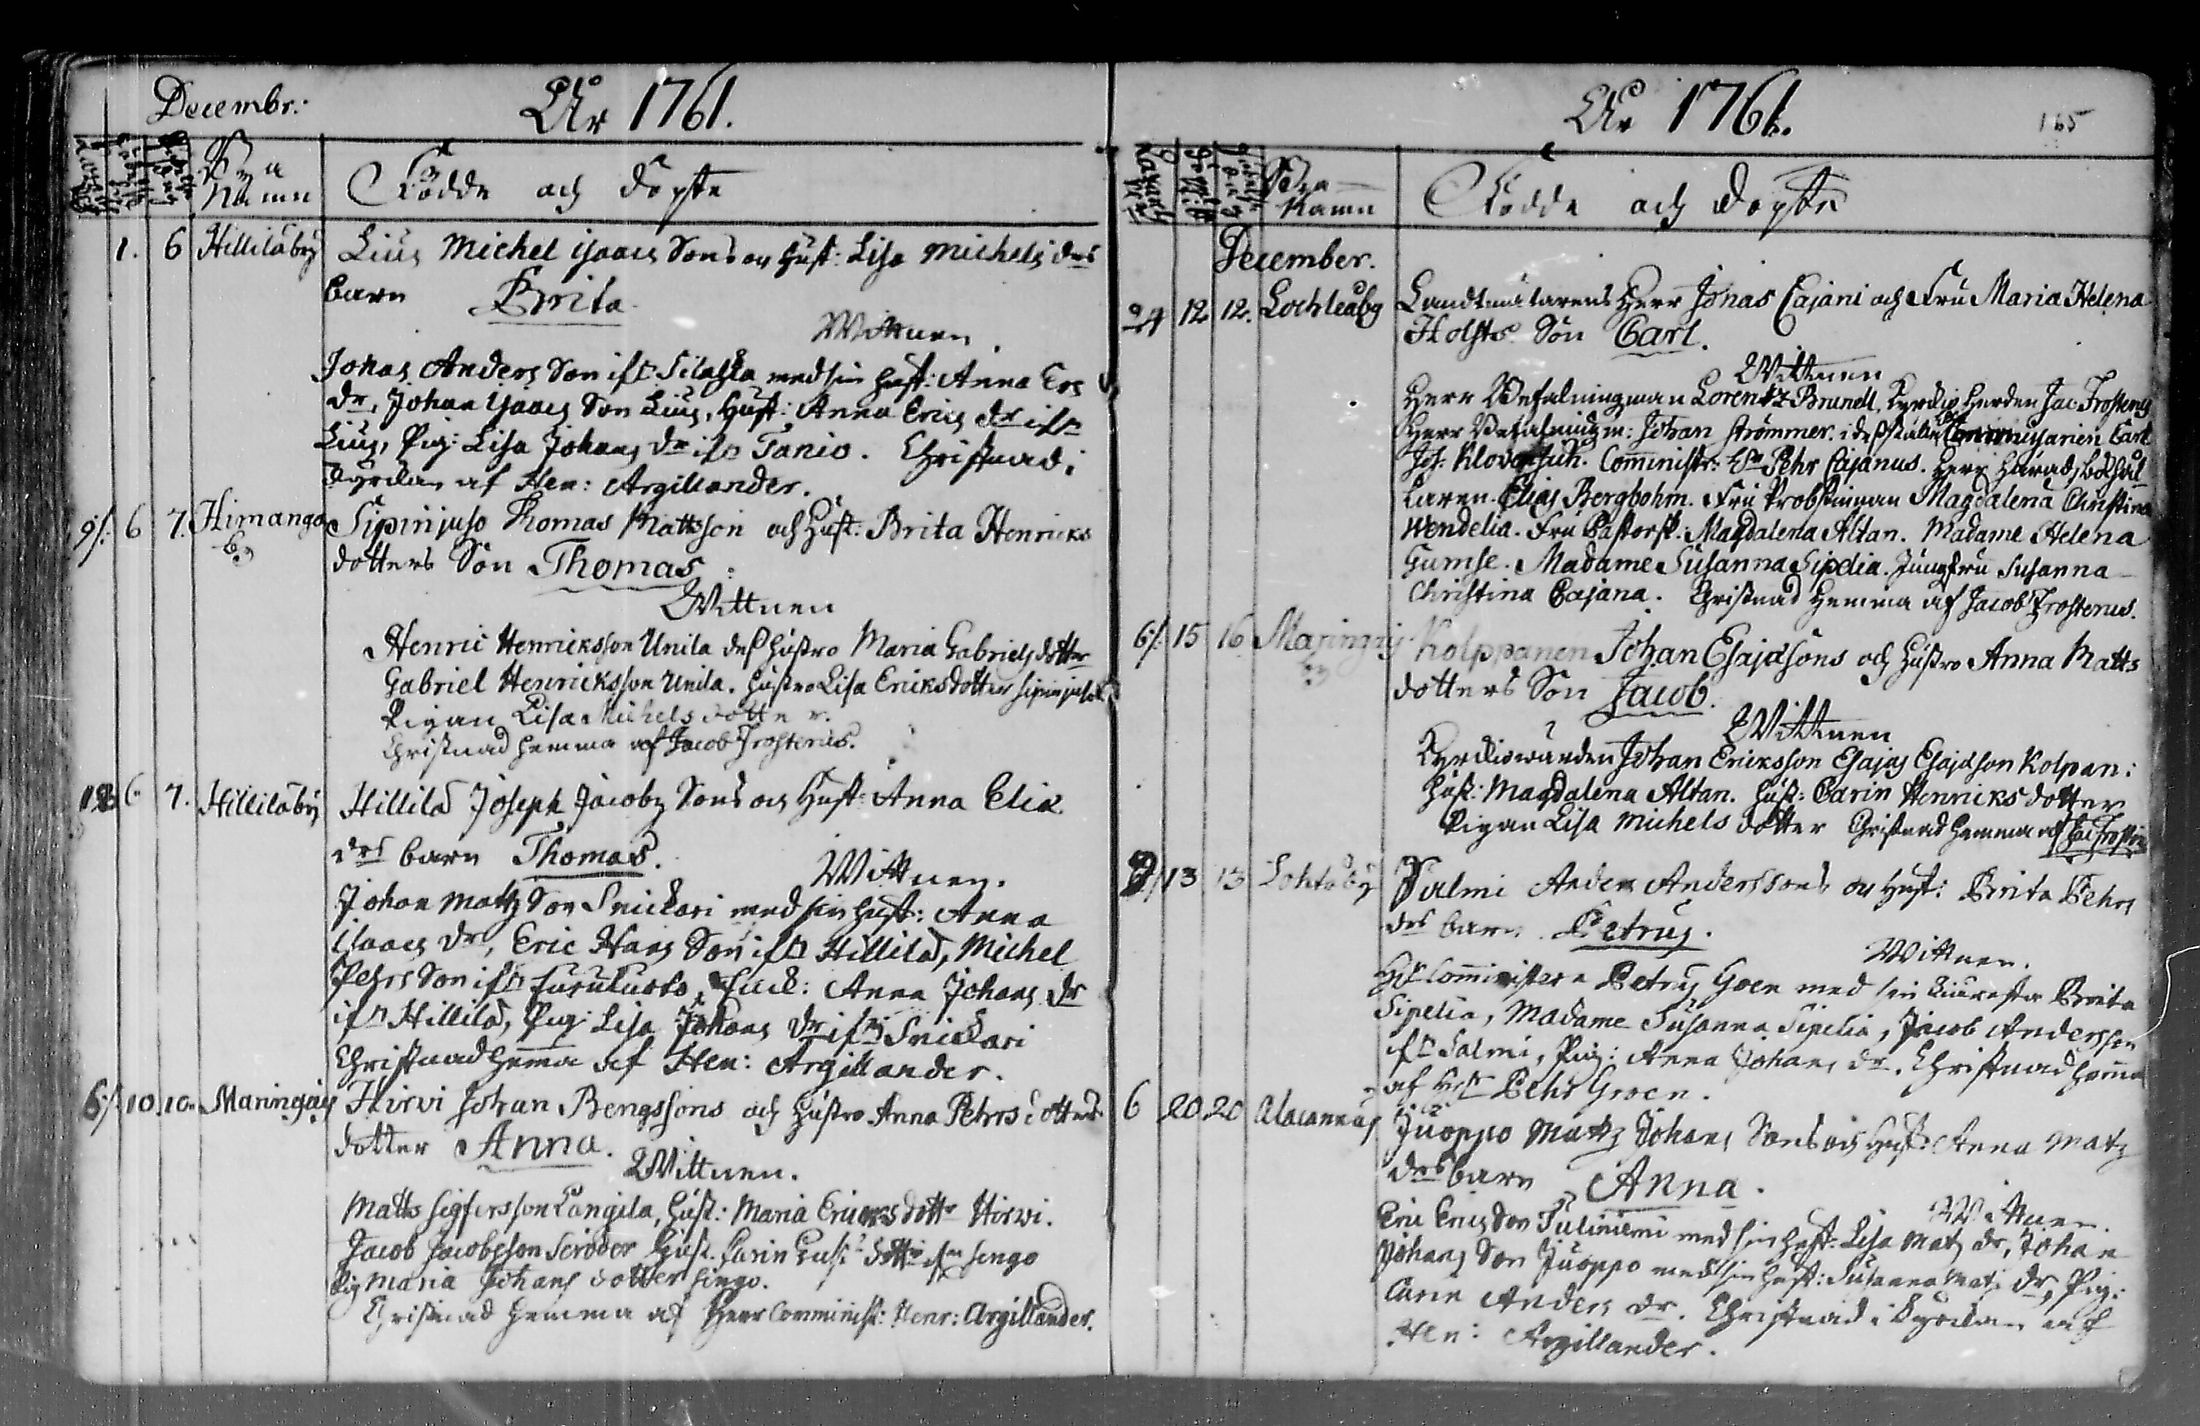 Decembr: År 1761.
Bya Namn Födde och döpte
1. 6 Hillilä by Lius Michel Isaacs Sons och Hust: Lisa Michels drs
barn Brita
Wittnen.
Johan Anders Son ifr med sin hust: Anna Ers
dr, Johan Isaacs Son Lius, Hust: Anna Erics dr ifr
Lius, Pig: Lisa Johans dr ifr Tanio. Christnad i
Kyrckan af Hen: Argillander.
9/. 6 7. Himango by Sipinjuso Thomas Mattsson och Hust: Brita Henricks
dotters Son Thomas.
Wittnen
Henric Henricksson Unila dess hustro Maria Gabriels dotter
Gabriel Henricksson Unila. hustro Lisa Ericksdotter
Pigan Lisa Michels dotter.
Christnad hemma af Jacob Frosterus.
6. 7. Hillilä by Hillilä Joseph Jacobs Sons och Hust: Anna Elia
drs barn Thomas.
Wittnen.
Johan Matz Son Snickari med sin hust: Anna
Isaacs dr, Eric Hans Son ifr Hillilä, Michel
Pehrs Son ifr Anna Johans dr
ifr Hillilä, Pig: Lisa Johans dr ifr Snickari
Christnad hema af Hen: Argillander.
6/. 10. 10. Maringais Hirvi Johan Bengssons och hustro Anna Pehrs dotters
dotter Anna.
Wittnen.
Matts Sigfersson Pangila, hust: Maria Ericksdottr Hirvi.
Jacob Jacobsson Scröder Hust. Carin dottr ifrn Singo
Pig Maria Johans dotter Singo.
Christnad hemma af Herr Comminist: Henr: Argillander.
År 1761. 165
Bya Namn Födde och döpte
December.
24 12 12. Lochteåby Landtmätarens Herr Jonas Cajani och Fru Maria Helena
Holsts Son Carl.
Wittnen
Herr Befalningman Lorentz Brunell, Kyrckio Herden Jac: Frosterus
Herr Befalningsm: Johan Strömmer. i des ställe Commissarien Carl
Joh: Comministr: Hr Pehr Cajanus. Herr Härads
Elias Bergbohm. Fru Probstinnan Magdalena Christina
Wendelia. Fru Pastorsk: Magdalena Altan. Madame Helena
Gumse. Madame Susanna Sipelia. Jungfru Susanna
Christina Cajana. Christnad hemma af Jacob Frosterus.
6/. 15 16 Maringais by Kolppanen Johan Esajæsons och hustro Anna Matts
dotters Son Jacob.
Wittnen
Kyrckiowärden Johan Ericksson Esajas Esajæson Kolpan:
hust: Magdalena Altan. hust: Carin Henricks dotter
Pigan Lisa Michels dotter Christnad hemma af Jac Froster
13 13 Lohtåby Salmi Anders Anderssons och hust: Brita Pehrs
drs barn Petrus.
Wittnen.
Hr Comministern Petrus Groen med sin Brita
Sipelia, Madame Susanna Sipelia, Jacob Andersson
ifr Salmi, Pig: Anna Johans dr. Christnad hemma
af Hr Pehr Groen.
6 20 20 Alacannus Juoppo Matz Johans Sons och Hust: Anna Matz
drs barn Anna.
Wittnen.
Eric Erics Son Tuliniemi med sin hust: Lisa Matz dr, Johan
Johans Son Juoppo med sin hust: Susanna Mats dr, Pig:
Carin Anders dr. Christnad i Kyrckan af
Hen: Argillander.